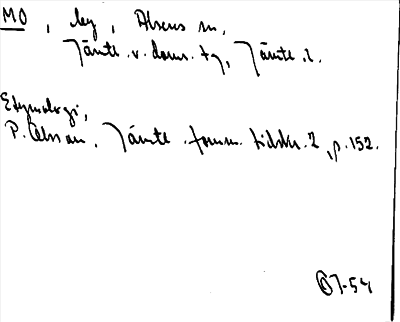 MO, by, Alsens sn,
Jämtl. v. doms. tg, Jämtl. l.
Etymologi,
P. Olsson, Jämtl. fornm. tidskr. 2, p. 152.
OJ-54